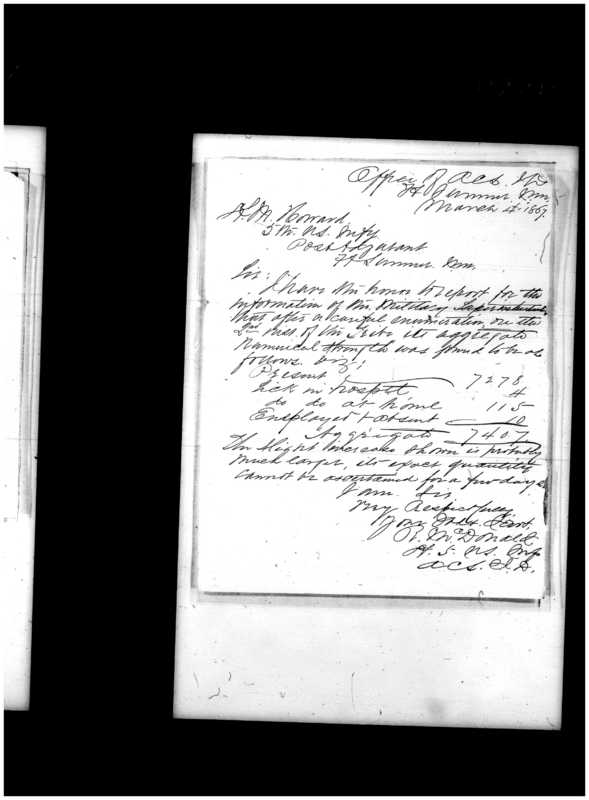 Office of ACS. I.D.
Ft Sumner N.M.
March 4th 1867.
H. M. Howard
5th U.S. Infty
Post Adjutant
Ft Sumner N.M.
Sir:
I have the honor to report for the
information of the Military Superintendent
that after a careful enumeration on the
2nd inst. of the Tribe its aggregate
numerical strength was found to be as
follows. viz;
Present 7278
Sick in hospital 4
do do at home 115
Employed & absent 10
Aggregate 7407
The slight increase shown is probably
much larger, its exact quantity
cannot be ascertained for a few days.
I am Sir
Very Respectfully
Your Obdt. Servt.
R. McDonald
Lt. 5. U.S. Inf
ACS. I.D.